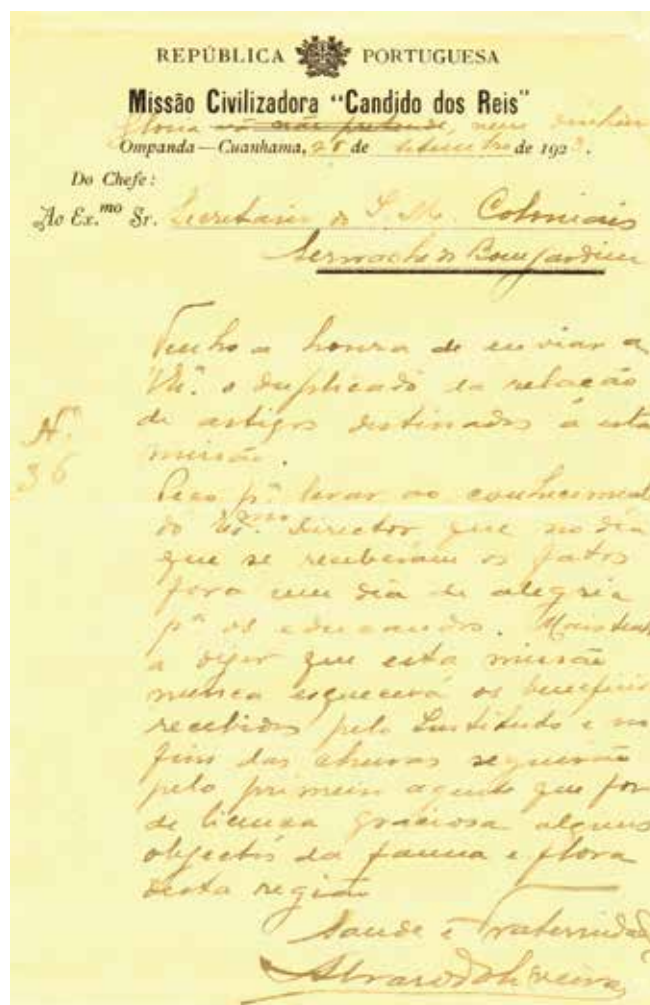 REPÚBLICA PORTUGUESA
Missão Civilizadora "Candido dos Reis"
Gloria não pretende, nem
Ompanda—Cuanhama, 28 de Setembro de 192
Do Chefe:
Ao Ex.mo Sr. Secretario do I. M. Coloniais
Sernache do Bomjardim
Tenho a honra de enviar a
o duplicado da relação
de artigos destinados á esta
missão.
Nº
36
Peço pª levar ao conhecimento
do Exmo Director que no dia
que se receberam os fatos
fora um dia de alegria
pª os educandos. Mais tenho
a dizer que esta missão
nunca esquecerá os beneficios
recebidos pelo Instituto e no
fim das chuvas seguirão
pelo primeiro agente que for
de licença graciosa alguns
objectos da fauna e flora
desta região
Saude e Fraternidade
Alvaro d'Oliveira